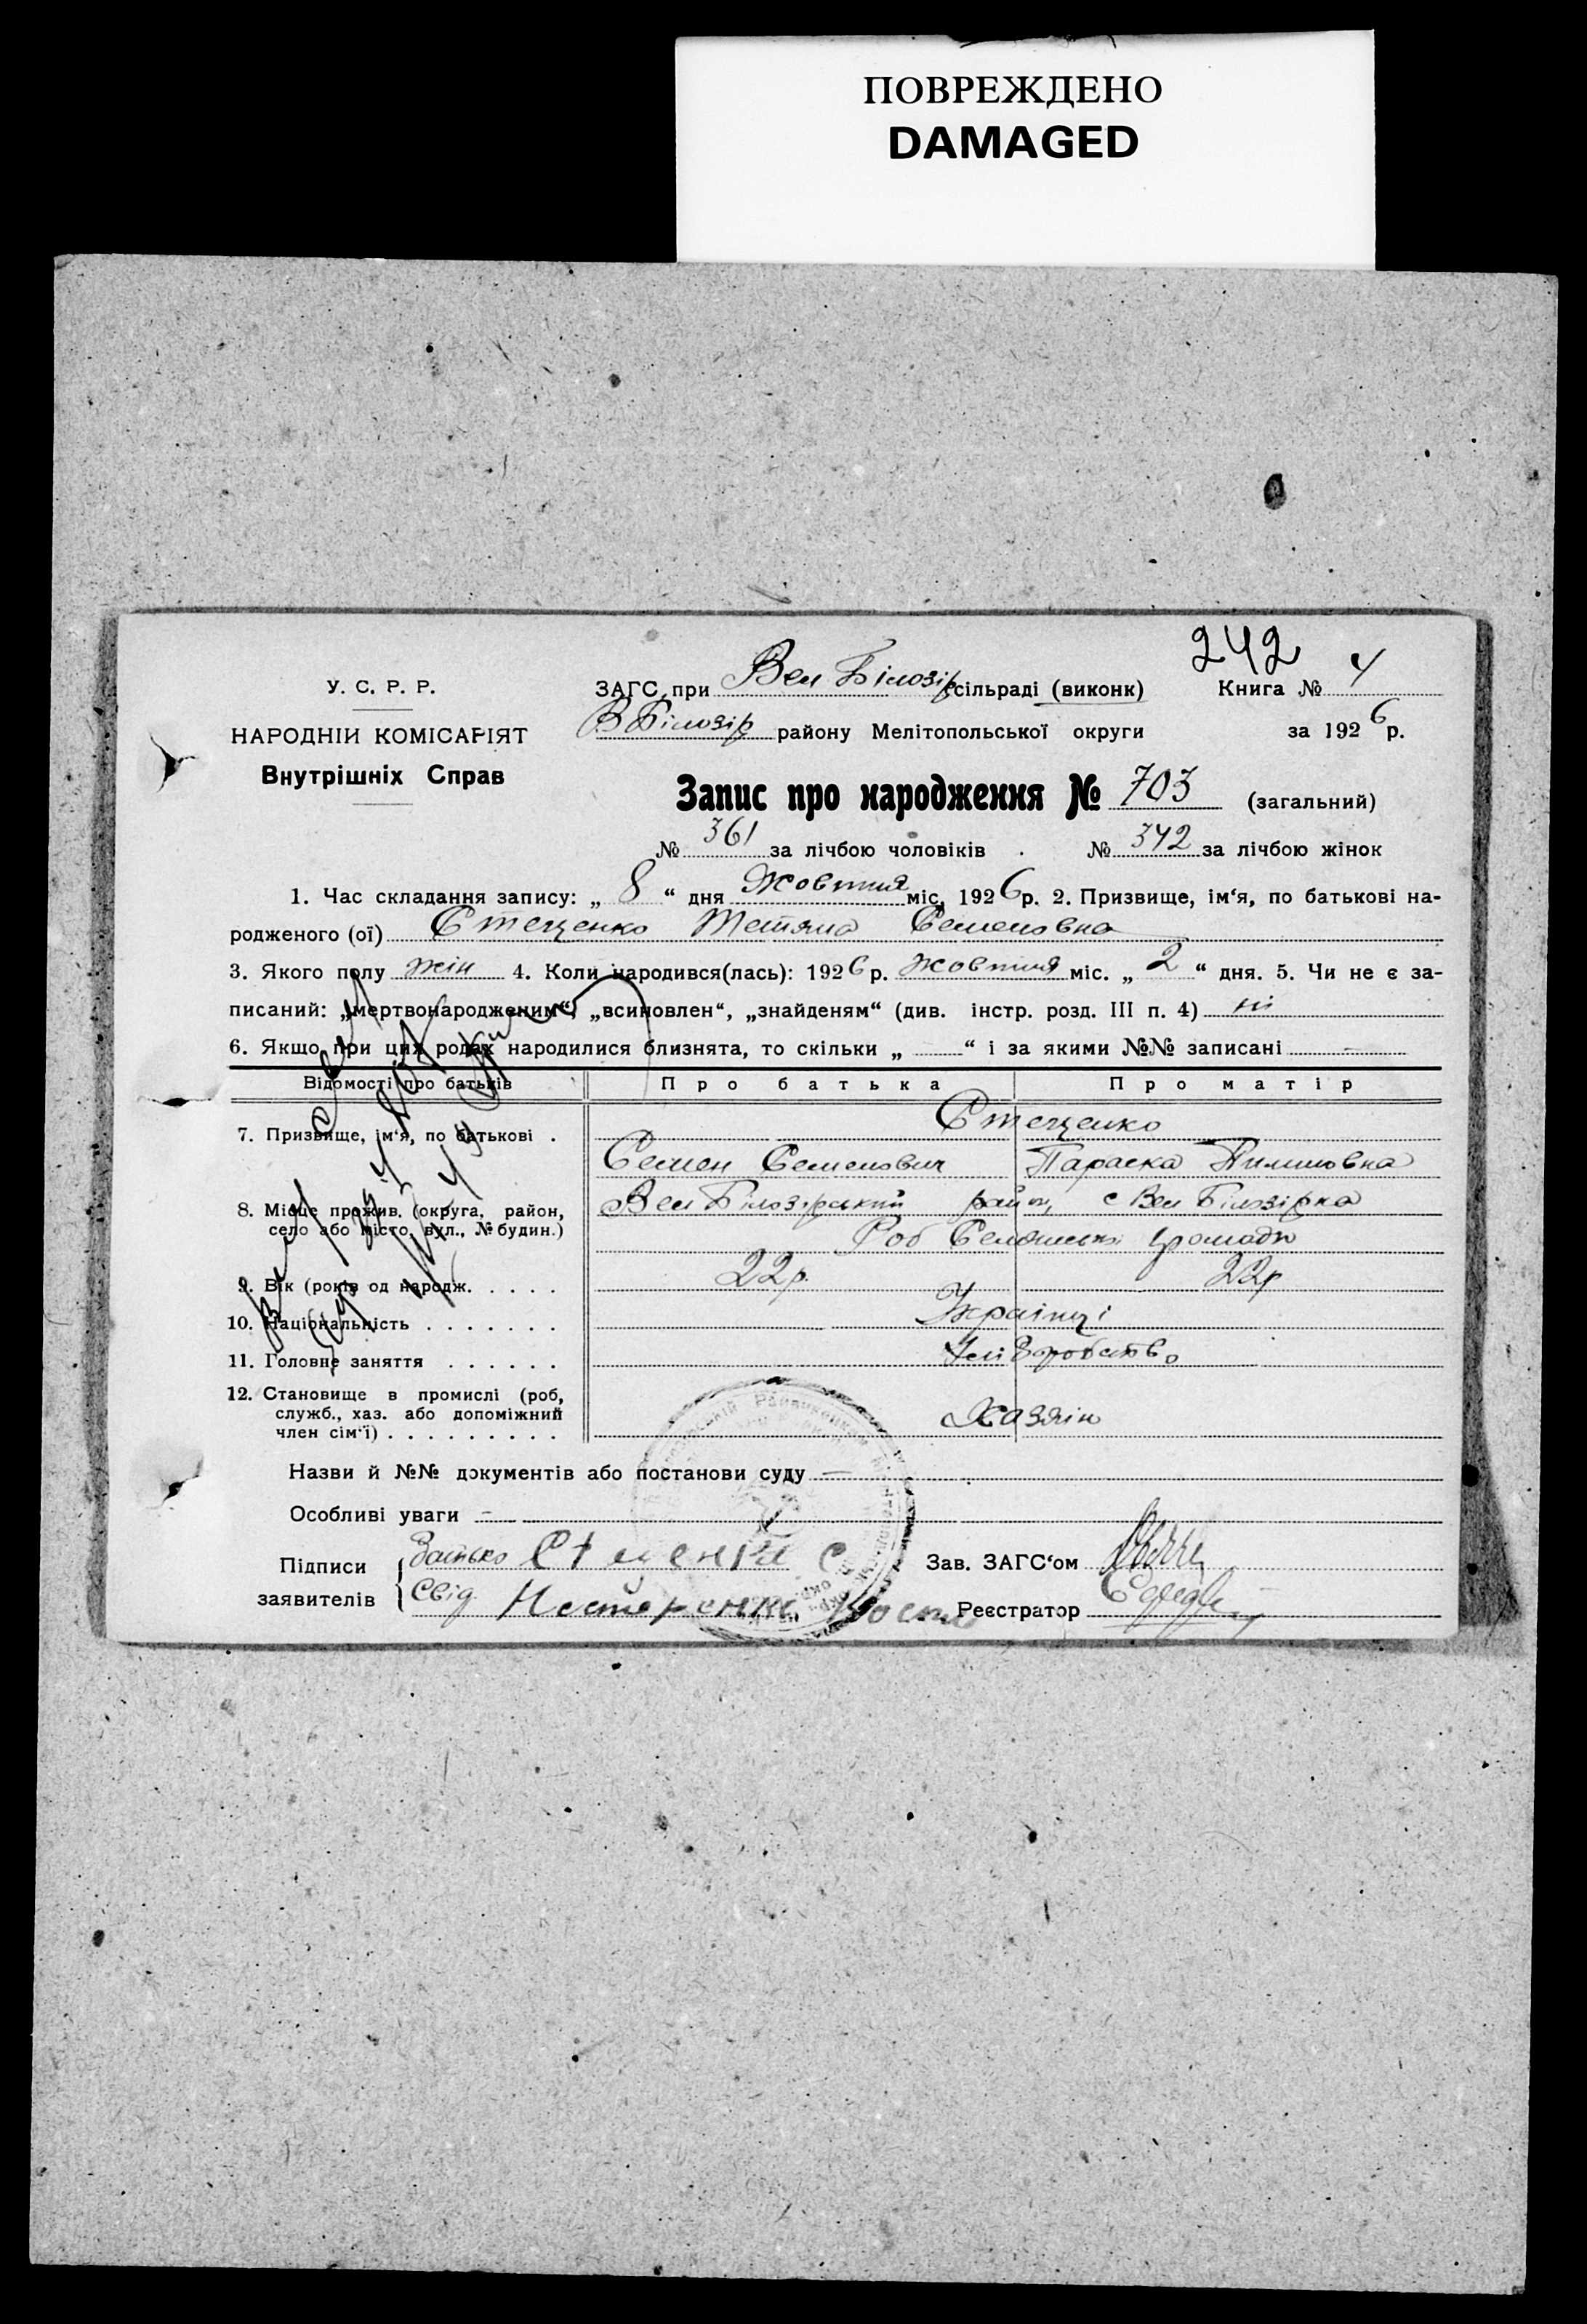 ПОВРЕЖДЕНО
DAMAGED
242
У. С. Р. Р.
НАРОДНІЙ КОМІСАРІЯТ
Внутрішніх Справ
ЗАГС при Вел Білозір сільраді (виконк) Книга № 4
В Білозір району Мелітопольської округи за 1926 р.
Запис про народження № 703 (загальний)
№ 361 за лічбою чоловіків № 342 за лічбою жінок
1. Час складання запису: „ 8 “ дня Жовтня міс. 1926 р. 2. Призвище, ім‘я, по батькові на-
родженого (ої) Стеценко Тетяна Семеновна
3. Якого полу жін 4. Коли народився(лась): 1926 р. жовтня міс. „ 2 “ дня. 5. Чи не є за-
писаний: „мертвонародженим“, „всиновлен“, „знайденям“ (див. інстр. розд. III п. 4) ні
6. Якщо при цих родах народилися близнята, то скільки „ “ і за якими №№ записані -
Відомості про батьків Про батька Про матір
7. Призвище, ім‘я, по батькові . Стеценко
Семен Семенович Параска Пилиповна
8. Місце прожив. (округа, район, Вел Білозірський район, с Вел Білозірка
село або місто, вул., № будин.) громади
9. Вік (років од народж. . . . . 22р. 22р
10. Національність . . . . . . . Українці
11. Головне заняття . . . . . . Хліборобство
12. Становище в промислі (роб,
служб., хаз. або допоміжний Хазяїн
член сім‘ї) . . . . . . . . .
Назви й №№ документів або постанови суду —
Особливі уваги –
Підписи Батько С Зав. ЗАГС‘ом
заявителів Свід. Нестеренко Реєстратор